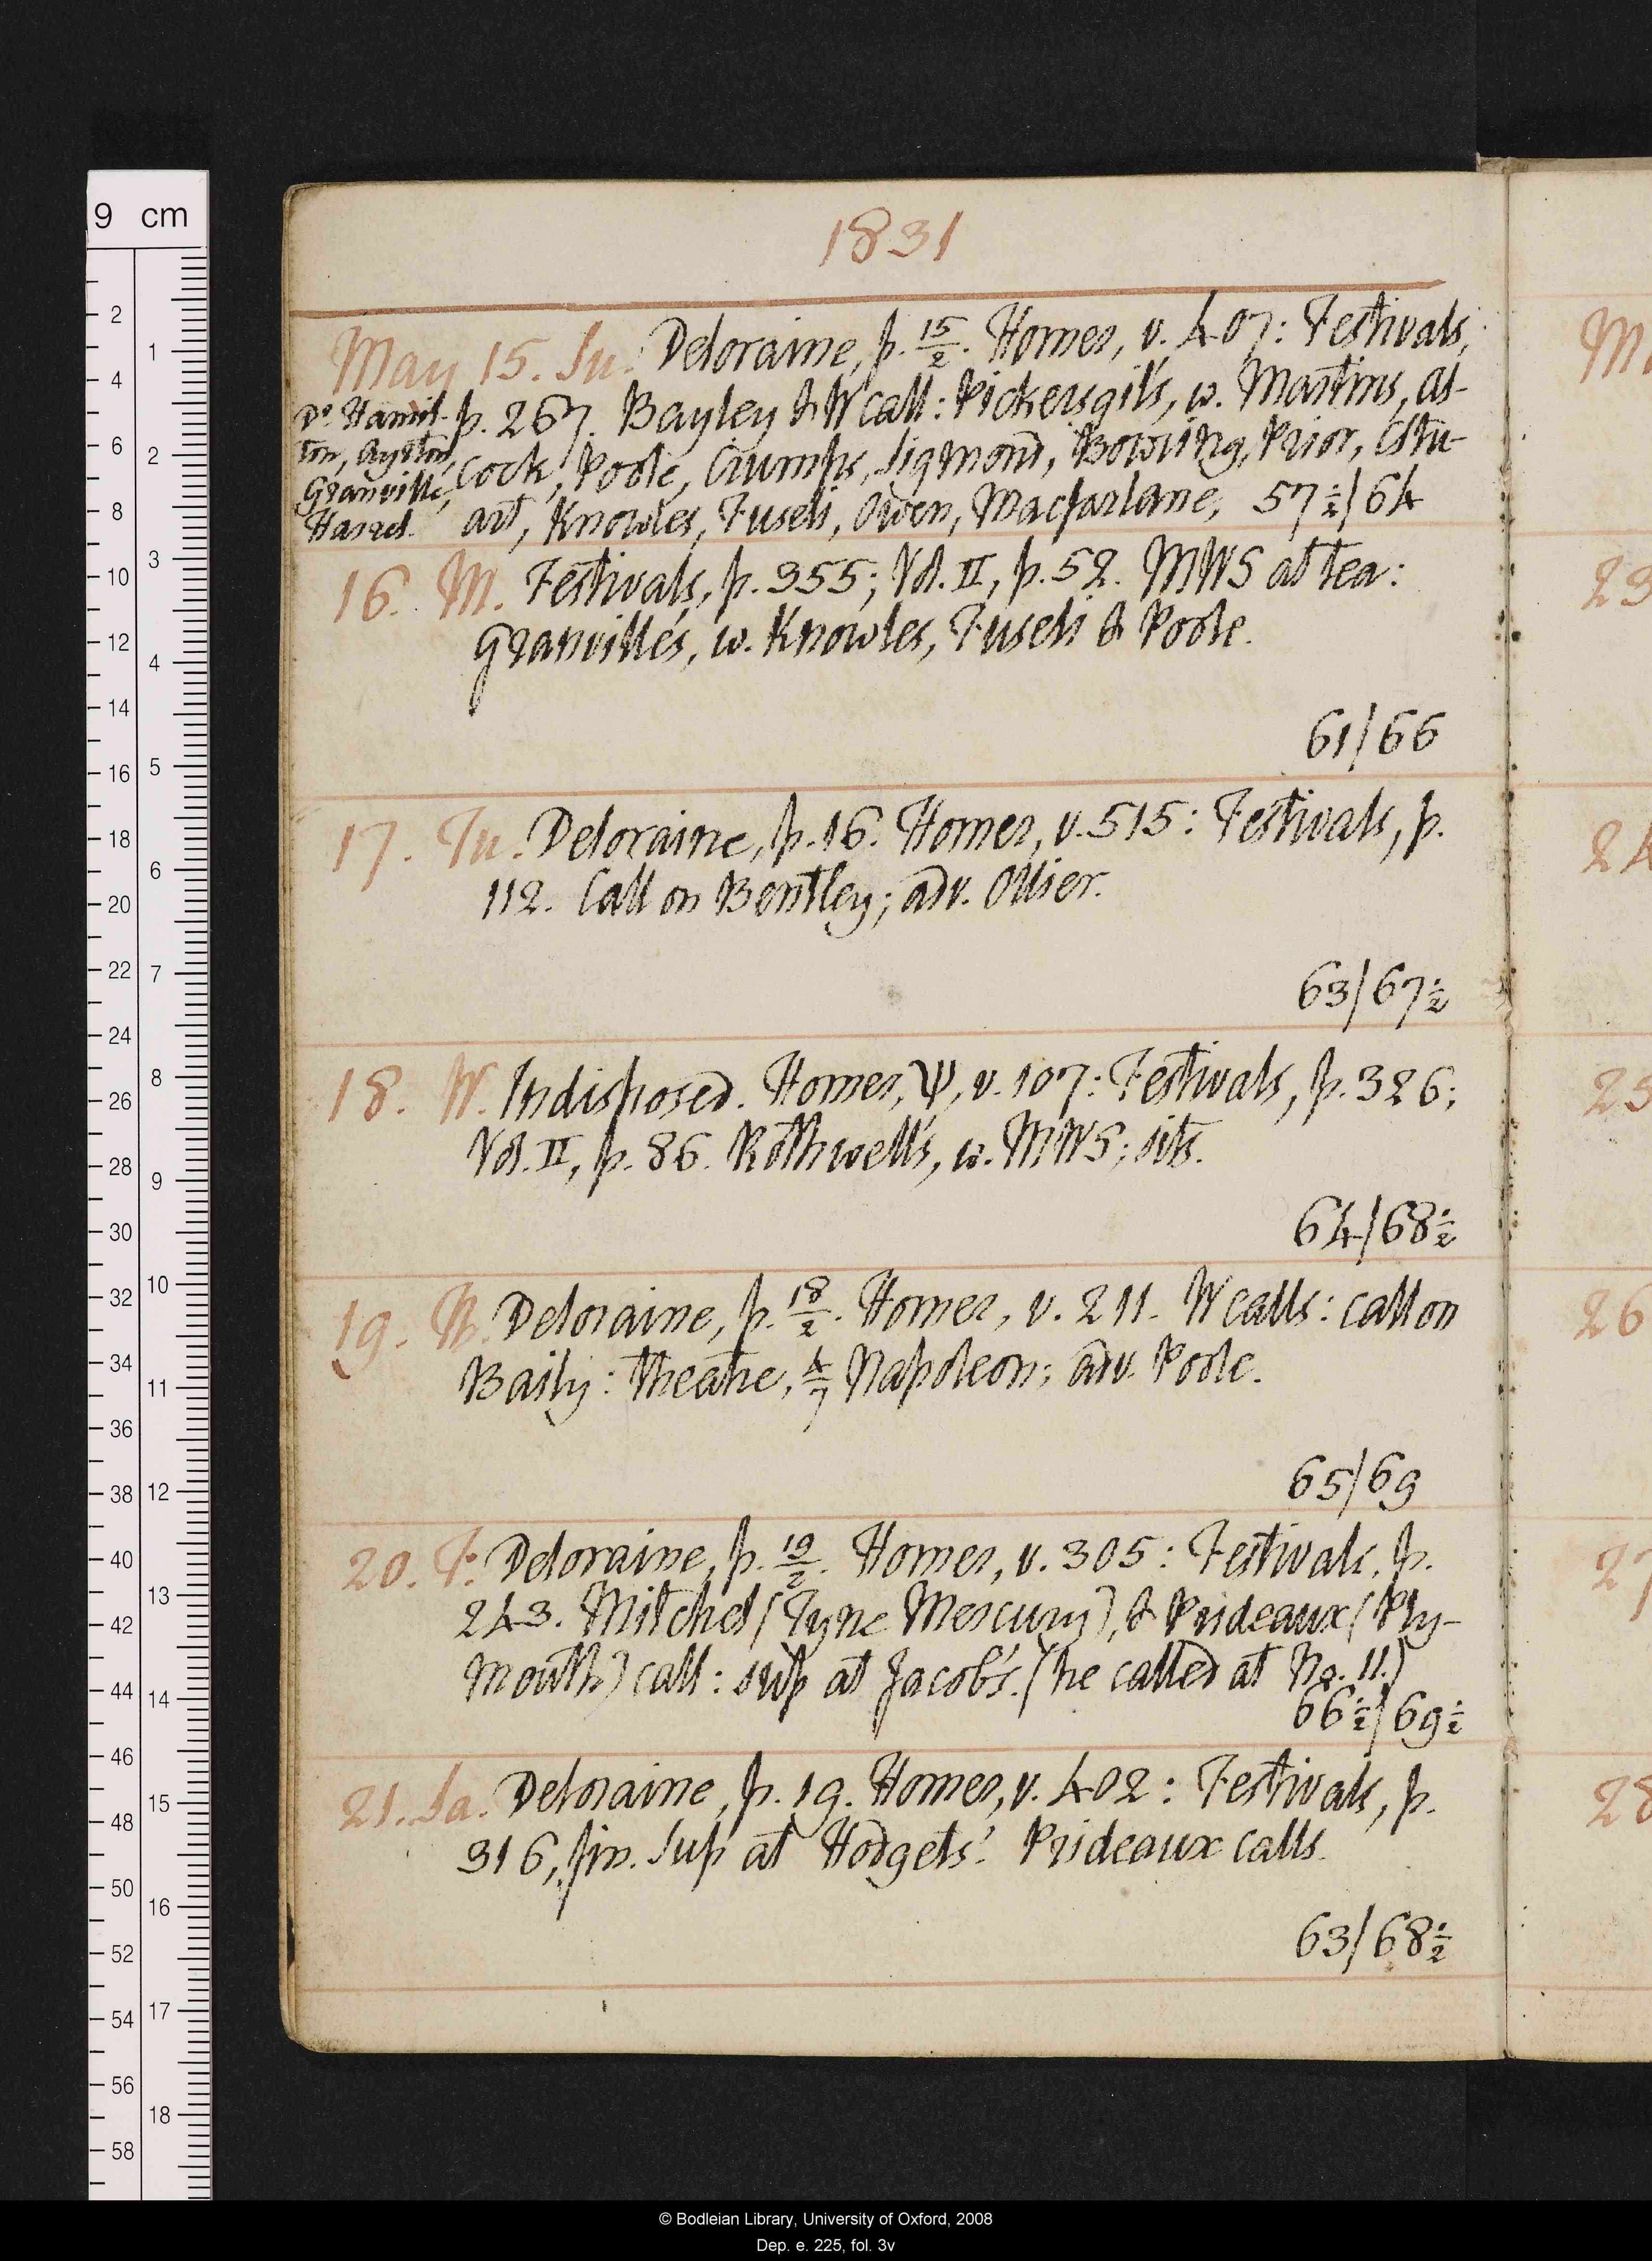 1831
May 15. Su. Deloraine, p. 15/2. Homer, v. 407: Festivals,
p. 267. Bayley & W call: Pickersgil's, w. Martins, Al-
cock, Poole, Crumps, Sigmond, Bowring, Prior, CStu-
art, Knowles, Fuseli, Owen, Macfarlane, 57½/64
Dr. Hamil-
ton, Ayrton,
Granville,
16. M. Festivals, p. 355; Vol. II, p. 52. MWS at tea:
Granville's, w. Knowles, Fuseli & Poole.
61/66
17. Tu. Deloraine, p. 16. Homer, v. 515: Festivals, p.
112. Call on Bentley; adv. Ollier.
63/67½
18. W. Indisposed. Homer, Ψ, v. 107: Festivals, p. 326;
Vol. II, p. 86. Rothwell's, w. MWS; sits.
64/68½
19. Th. Deloraine, p. 18/2. Homer, v. 211. W calls: call on
Baily: theatre, 4/7 Napoleon; adv. Poole.
65/69
20. F. Deloraine, p. 19/2. Homer, v. 305: Festivals, p.
243. Mitchel (Tyne Mercury), & Prideaux (Ply-
mouth) call: sup at Jacob's. (he called at No. 11.)
66½/69½
21. Sa. Deloraine, p. 19. Homer, v. 402: Festivals, p.
316, fin. Sup at Hodgets'. Prideaux calls.
63/68½
M
23
24
25
26
27
28
9 cm
2
4
6
8
10
12
14
16
18
20
22
24
26
28
30
32
34
36
38
40
42
44
46
48
50
52
54
56
58
1
2
3
4
5
6
7
8
9
10
11
12
13
14
15
16
17
18
© Bodleian Library, University of Oxford, 2008
Dep. e. 225, fol. 3v